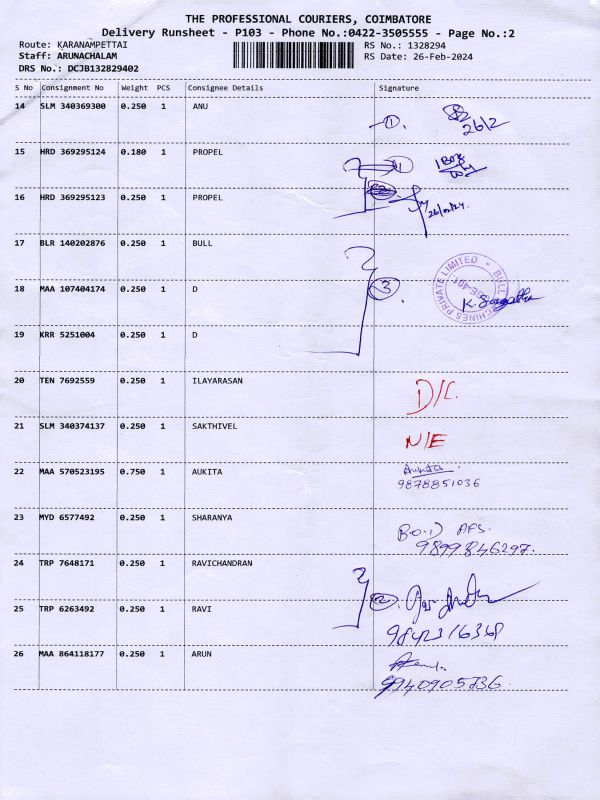 THE PROFESSIONAL COURIERS, COIMBATORE
Delivery Runsheet - P103 - Phone No.:0422-3505555 - Page No.:2
Route: KARANAMPETTAI RS No.: 1328294
Staff: ARUNACHALAM RS Date: 26-Feb-2024
DRS No.: DCJB132829402
S No Consignment No Weight PCS Consignee Details Signature
14 SLM 340369300 0.250 1 ANU
1. 26/2
15 HRD 369295124 0.180 1 PROPEL
1
16 HRD 369295123 0.250 1 PROPEL
26/02/24.
17 BLR 140202876 0.250 1 BULL
18 MAA 107404174 0.250 1 D
3
19 KRR 5251004 0.250 1 D
20 TEN 7692559 0.250 1 ILAYARASAN
D/L.
21 SLM 340374137 0.250 1 SAKTHIVEL
N/E
22 MAA 570523195 0.750 1 AUKITA
Aukita
9878851036
23 MYD 6577492 0.250 1 SHARANYA
9899846297.
24 TRP 7648171 0.250 1 RAVICHANDRAN
2.
25 TRP 6263492 0.250 1 RAVI
9842316368
26 MAA 864118177 0.250 1 ARUN
9940905736.